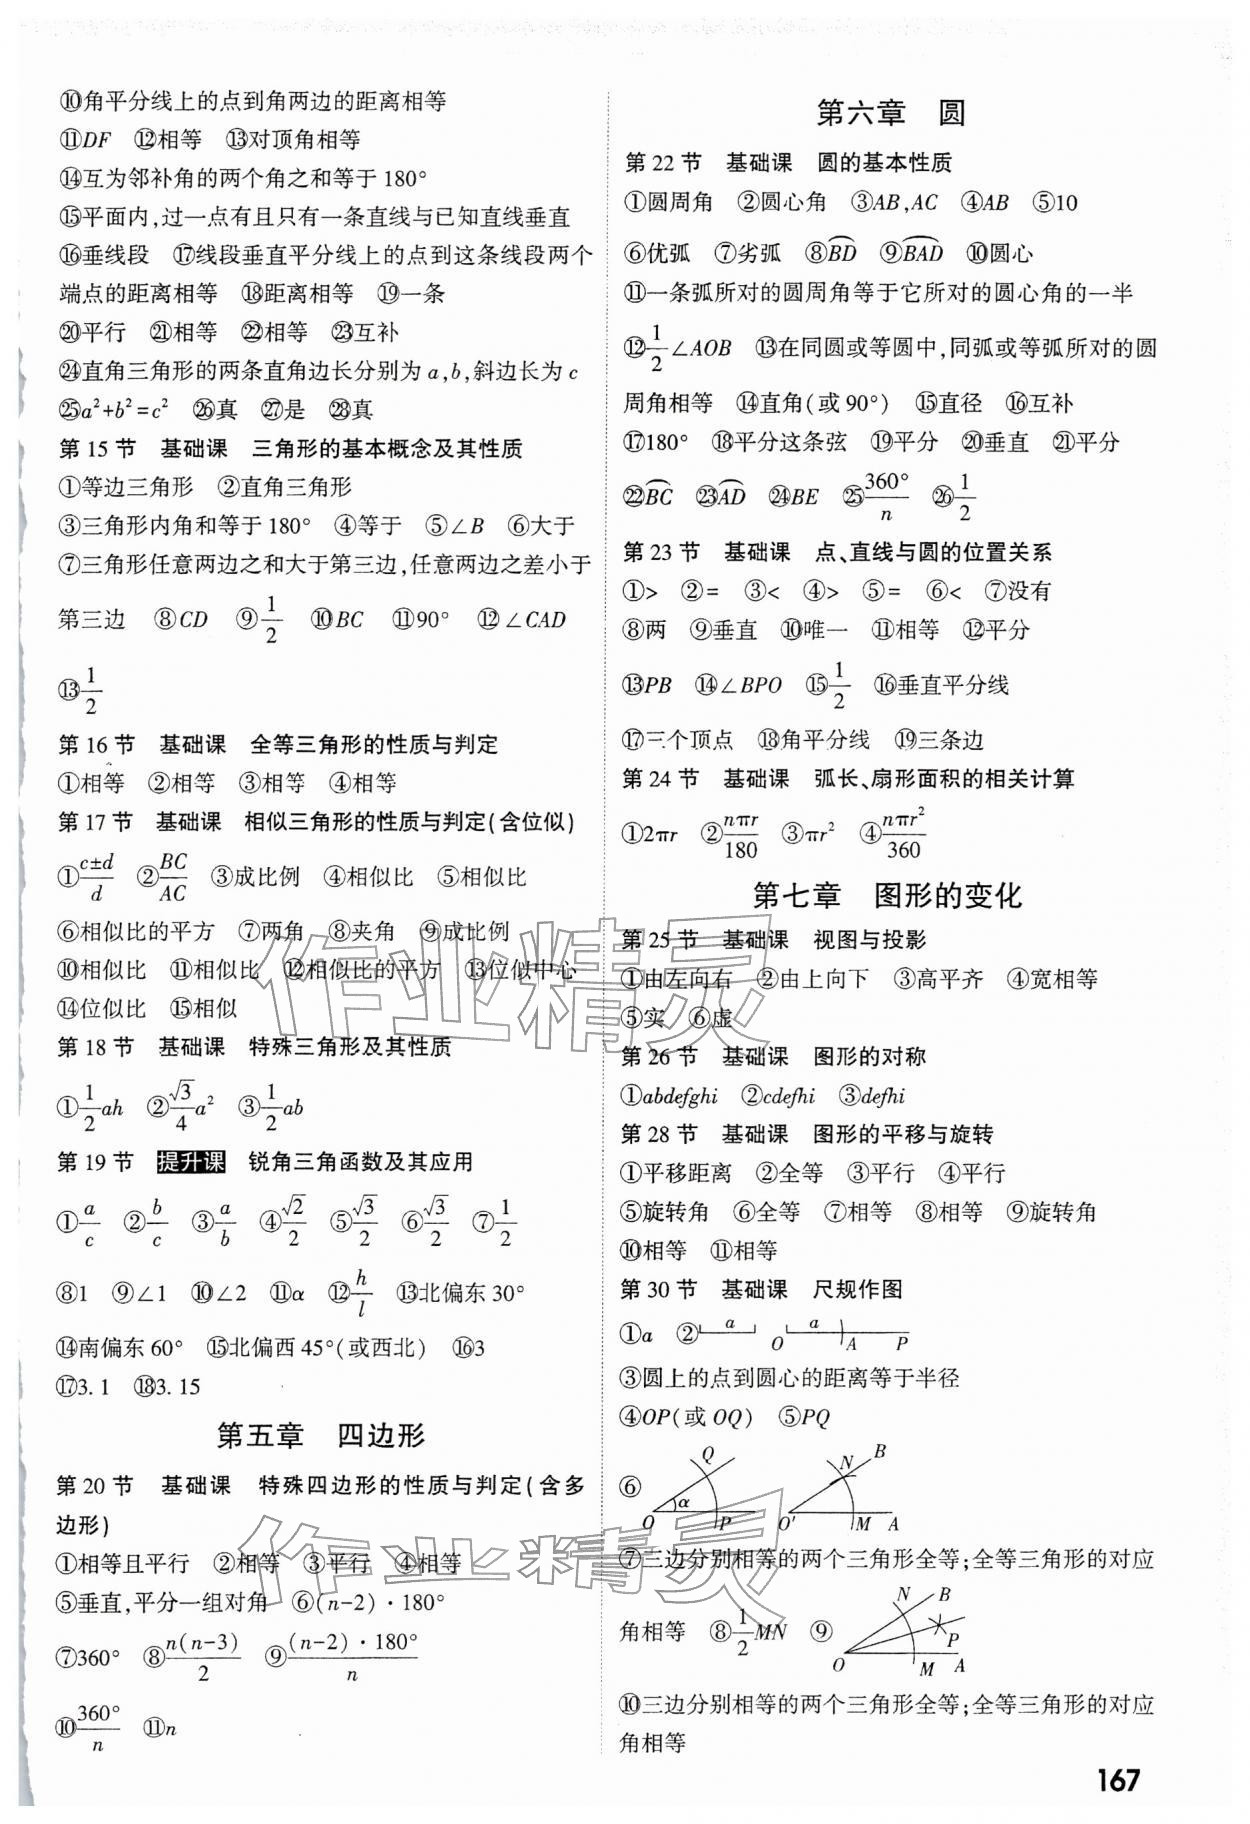 ⑩角平分线上的点到角两边的距离相等
⑪DF ⑫相等 ⑬对顶角相等
⑭互为邻补角的两个角之和等于180°
⑮平面内,过一点有且只有一条直线与已知直线垂直
⑯垂线段 ⑰线段垂直平分线上的点到这条线段两个
端点的距离相等 ⑱距离相等 ⑲一条
⑳平行 ㉑相等 ㉒相等 ㉓互补
㉔直角三角形的两条直角边长分别为a,b,斜边长为c
㉕a²+b²=c² ㉖真 ㉗是 ㉘真
第15节 基础课 三角形的基本概念及其性质
①等边三角形 ②直角三角形
③三角形内角和等于180° ④等于 ⑤∠B ⑥大于
⑦三角形任意两边之和大于第三边,任意两边之差小于
第三边 ⑧CD ⑨1/2 ⑩BC ⑪90° ⑫∠CAD
⑬1/2
第16节 基础课 全等三角形的性质与判定
①相等 ②相等 ③相等 ④相等
第17节 基础课 相似三角形的性质与判定(含位似)
①c±d/d ②BC/AC ③成比例 ④相似比 ⑤相似比
⑥相似比的平方 ⑦两角 ⑧夹角 ⑨成比例
⑩相似比 ⑪相似比 ⑫相似比的平方 ⑬位似中心
⑭位似比 ⑮相似
第18节 基础课 特殊三角形及其性质
①1/2ah ②√3/4a² ③1/2ab
第19节 提升课 锐角三角函数及其应用
①a/c ②b/c ③a/b ④√2/2 ⑤√3/2 ⑥√3/2 ⑦1/2
⑧1 ⑨∠1 ⑩∠2 ⑪α ⑫h/l ⑬北偏东30°
⑭南偏东60° ⑮北偏西45°(或西北) ⑯3
⑰3.1 ⑱3.15
第五章 四边形
第20节 基础课 特殊四边形的性质与判定(含多
边形)
①相等且平行 ②相等 ③平行 ④相等
⑤垂直,平分一组对角 ⑥(n-2)·180°
⑦360° ⑧n(n-3)/2 ⑨(n-2)·180°/n
⑩360°/n ⑪n
第六章 圆
第22节 基础课 圆的基本性质
①圆周角 ②圆心角 ③AB,AC ④AB ⑤10
⑥优弧 ⑦劣弧 ⑧BD ⑨BAD ⑩圆心
⑪一条弧所对的圆周角等于它所对的圆心角的一半
⑫1/2∠AOB ⑬在同圆或等圆中,同弧或等弧所对的圆
周角相等 ⑭直角(或90°) ⑮直径 ⑯互补
⑰180° ⑱平分这条弦 ⑲平分 ⑳垂直 ㉑平分
㉒BC ㉓AD ㉔BE ㉕360°/n ㉖1/2
第23节 基础课 点、直线与圆的位置关系
①> ②= ③< ④> ⑤= ⑥< ⑦没有
⑧两 ⑨垂直 ⑩唯一 ⑪相等 ⑫平分
⑬PB ⑭∠BPO ⑮1/2 ⑯垂直平分线
⑰三个顶点 ⑱角平分线 ⑲三条边
第24节 基础课 弧长、扇形面积的相关计算
①2πr ②nπr/180 ③πr² ④nπr²/360
第七章 图形的变化
第25节 基础课 视图与投影
①由左向右 ②由上向下 ③高平齐 ④宽相等
⑤实 ⑥虚
第26节 基础课 图形的对称
①abdefghi ②cdefhi ③defhi
第28节 基础课 图形的平移与旋转
①平移距离 ②全等 ③平行 ④平行
⑤旋转角 ⑥全等 ⑦相等 ⑧相等 ⑨旋转角
⑩相等 ⑪相等
第30节 基础课 尺规作图
①a ② a O a A P
③圆上的点到圆心的距离等于半径
④OP(或OQ) ⑤PQ
⑥ O α Q P O′ N B M A
⑦三边分别相等的两个三角形全等;全等三角形的对应
角相等 ⑧1/2MN ⑨ O N B P M A
⑩三边分别相等的两个三角形全等;全等三角形的对应
角相等
167
作业精灵
作业精灵